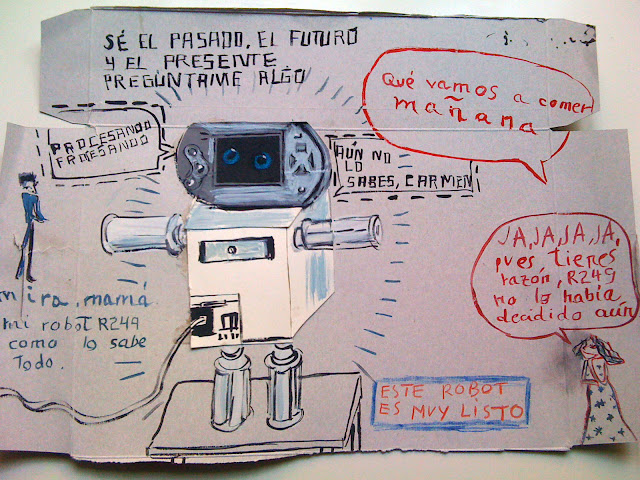 SÉ EL PASADO, EL FUTURO
Y EL PRESENTE
PREGÚNTAME ALGO
Qué vamos a comer
mañana
PROCESANDO
PROCESANDO
AÚN NO
LO
SABES, CARMEN
JA, JA, JA, JA,
pues tienes
razón, R249
no lo había
decidido aún
mira, mamá
mi robot R249
como lo sabe
Todo.
ESTE ROBOT
ES MUY LISTO